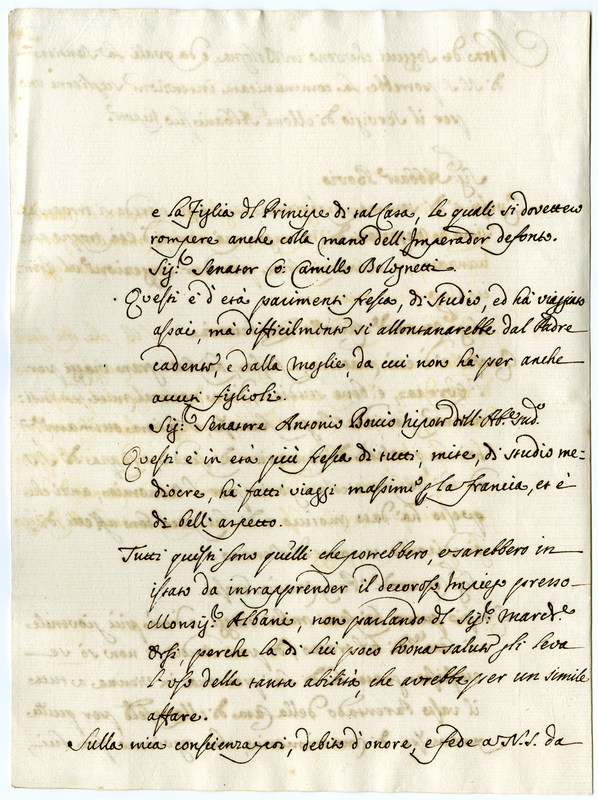 e la Figlia dl Principe di tal Casa, le quali si dovettero
rompere anche colla mano dell'Imperador defonto.
Sig.r Senator Co: Camillo Bolognetti.
Questi è d'età parimenti fresca, di studio, ed hà viaggiato
assai, mà difficilmente si allontanarebbe dal Padre
cadente, e dalla moglie, da cui non hà per anche
avuti figlioli.
Sig.r Senatore Antonio Bovio Nipote dell'Ab.e sud.o
Questi è in età più fresca di tutti, mite, di studio me=
diocre, hà fatti viaggi massime p la Francia, et è
di bell'aspetto.
Tutti questi sono quelli che potrebbero, e sarebbero in
istato da intrapprender il decoroso Impiego presso
Monsig.r Albani, non parlando dl Sig.r March.e
Orsi, perche la di lui poco buona salute gli leva
l'uso della tanta abilità, che avrebbe per un simile
affare.
Sulla mia conscienza poi, debito d'onore, e fede a N.S. da